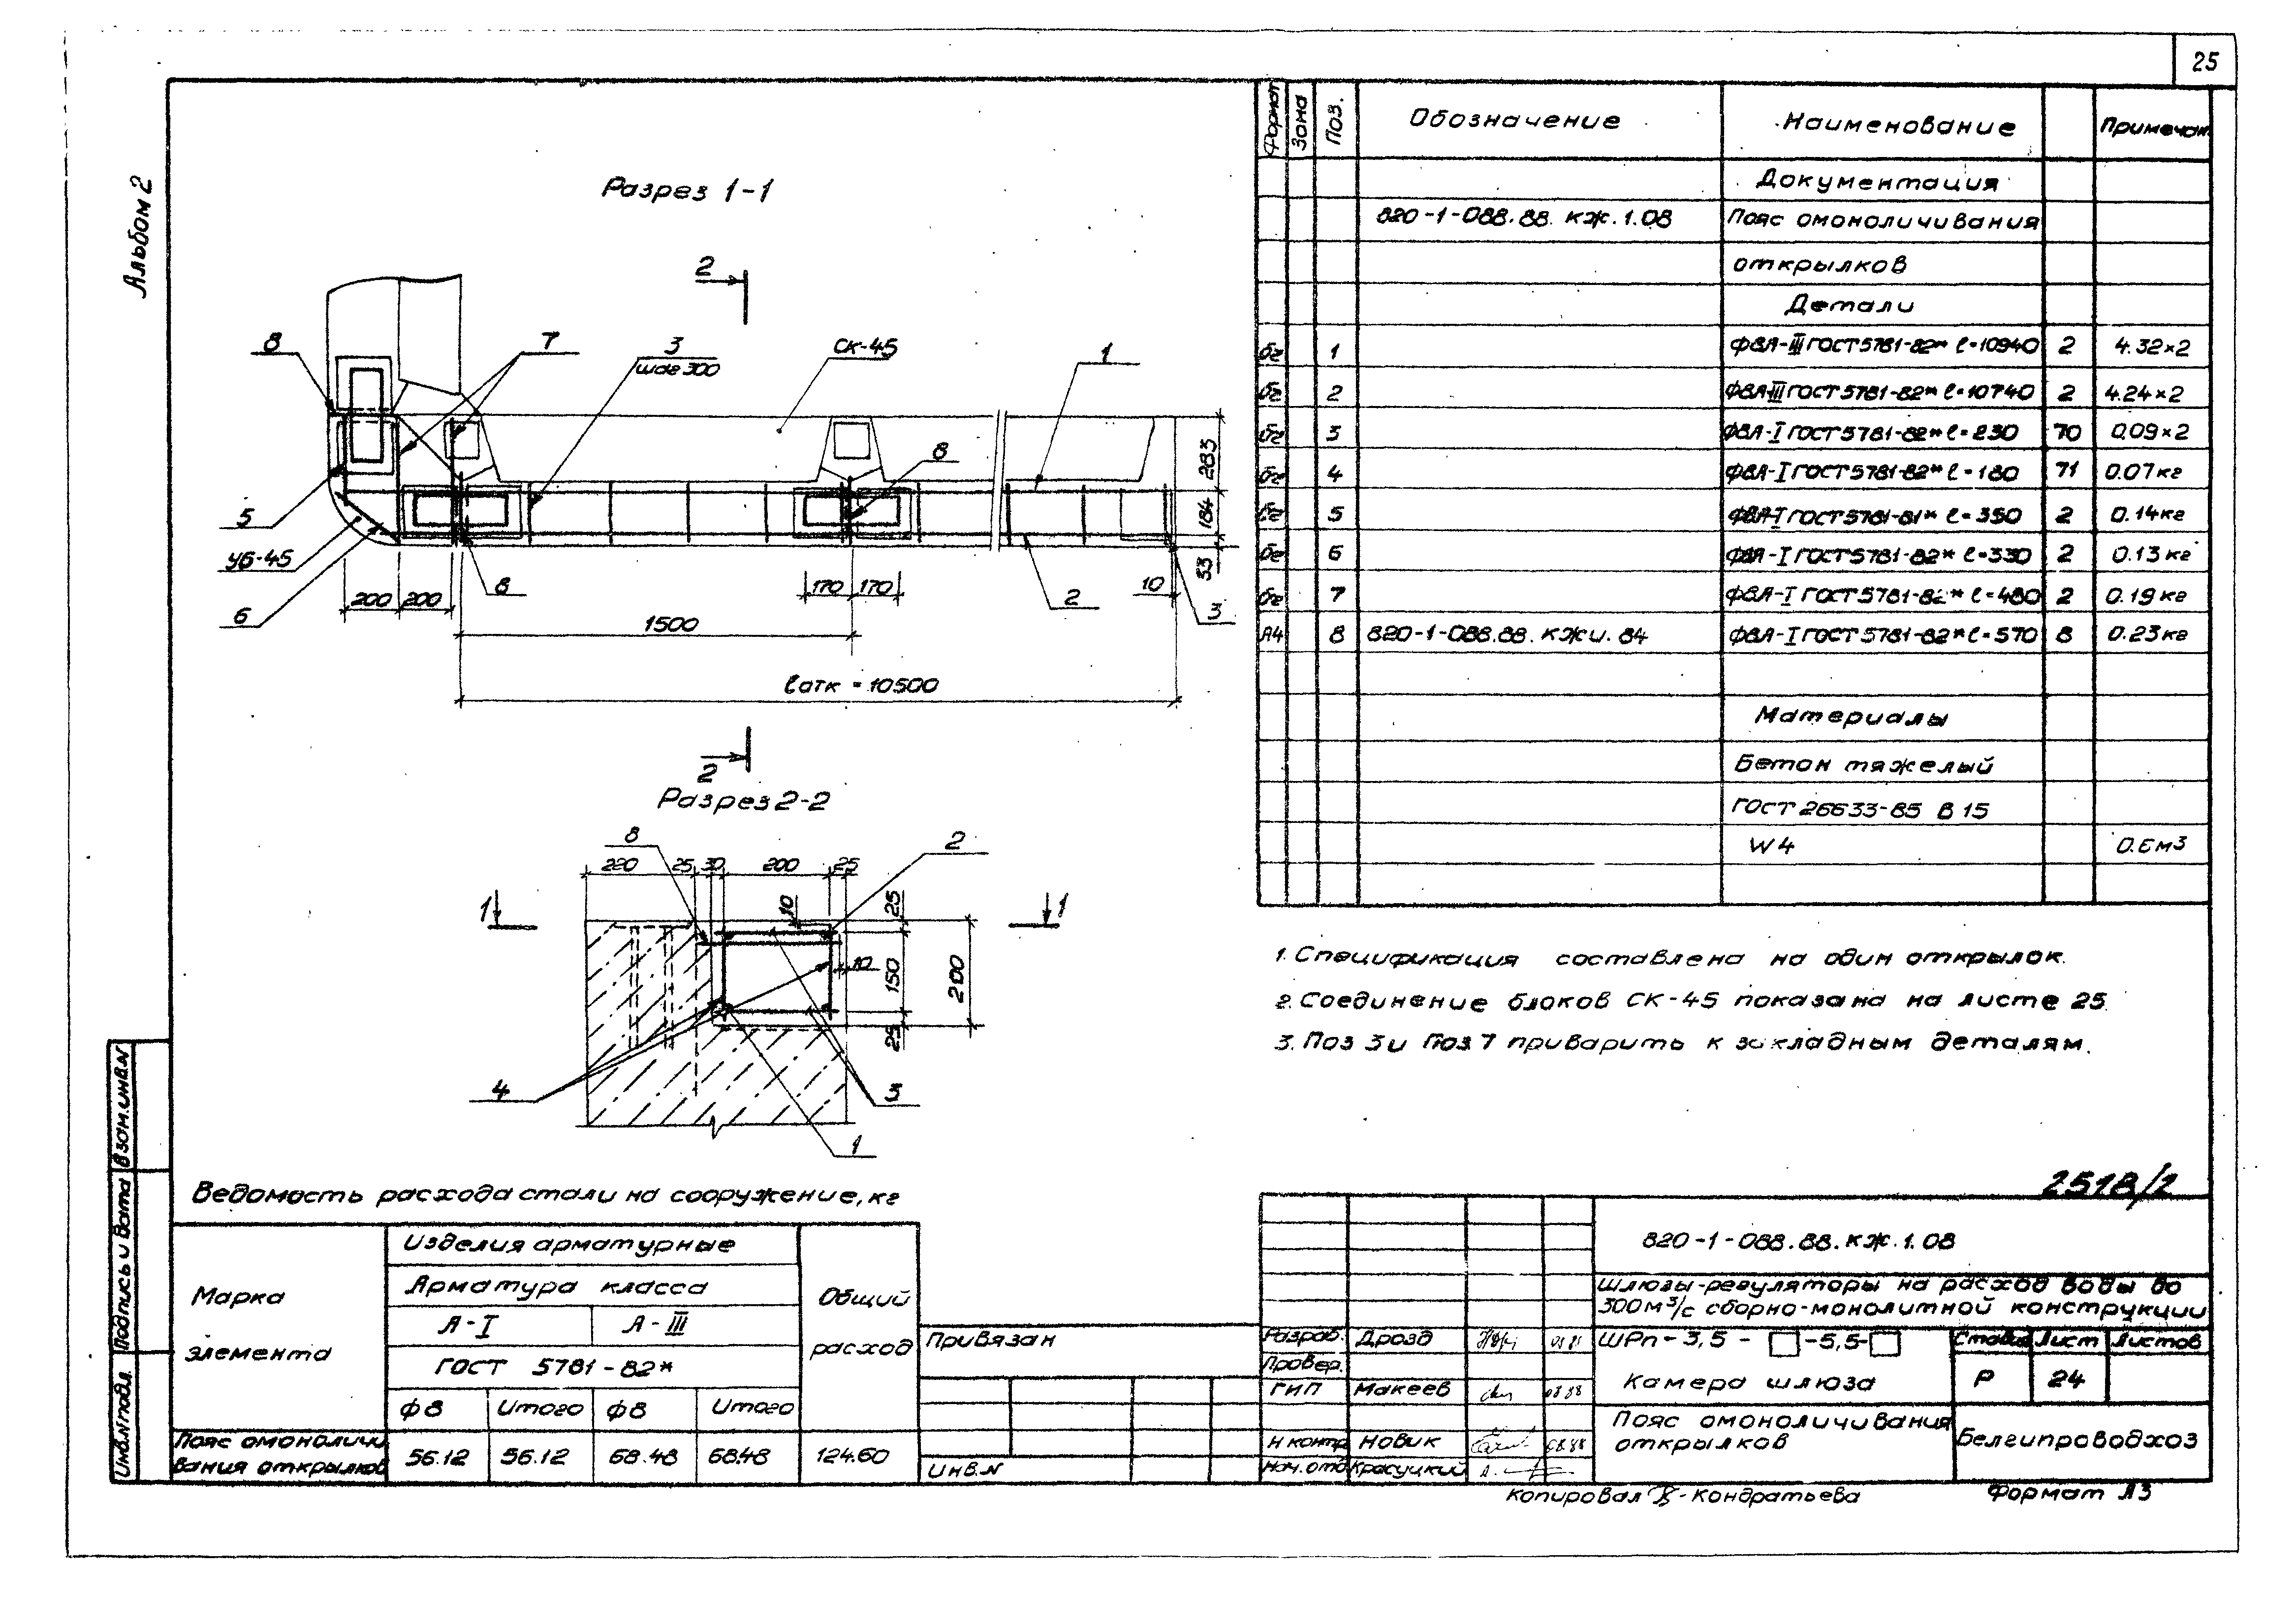 25
Альбом 2
Разрез 1-1
2
8
7
3
шаг 300
СК-45
1
8
5
УБ-45
6
8
2
3
283
184
33
200
200
170
170
10
1500
ℓотк = 10500
2
Разрез 2-2
8
2
220
25
30
200
25
1
1
10
25
10
150
200
25
4
3
1
Формат
Зона
Поз.
Обозначение
Наименование
Примечан
Документация
820-1-088.88. КЖ.1.08
Пояс омоноличивания
открылков
Детали
бг 1 ф8А-III ГОСТ 5781-82* ℓ=10940 2 4.32×2
бг 2 ф8А-III ГОСТ 5781-82* ℓ=10740 2 4.24×2
бг 3 ф8А-I ГОСТ 5781-82* ℓ=230 70 0.09×2
бг 4 ф8А-I ГОСТ 5781-82* ℓ=180 71 0.07кг
бг 5 ф8А-I ГОСТ 5781-81* ℓ=350 2 0.14кг
бг 6 ф8А-I ГОСТ 5781-82* ℓ=330 2 0.13кг
бг 7 ф8А-I ГОСТ 5781-82* ℓ=480 2 0.19кг
А4 8 820-1-088.88. КЖИ. 84 ф8А-I ГОСТ 5781-82* ℓ=570 8 0.23кг
Материалы
Бетон тяжелый
ГОСТ 26633-85 В 15
W4
1. Спецификация составлена на один открылок.
2. Соединение блоков СК-45 показана на листе 25.
3. Поз 3 и Поз 7 приварить к закладным деталям.
2518/2
Ведомость расхода стали на сооружение, кг
Марка
элемента
Изделия арматурные
Арматура класса
А-I
А-III
ГОСТ 5781-82*
ф8 Итого ф8 Итого
Общий
расход
Пояс омоноличи
вания открылков
56.12 56.12 68.48 68.48 124.60
Привязан
Инв.N
820-1-088.88.КЖ.1.08
Шлюзы-регуляторы на расход воды до
300 м³/с сборно-монолитной конструкции
Разраб. Дрозд
Провер.
ГИП Макеев 08.88
Н контр Новик 08.88
Нач.отд Красуцкий
ШРп-3,5-□-5,5-□
Камера шлюза
Стадия Лист Листов
Р 24
Пояс омоноличивания
открылков
Белгипроводхоз
Копировал Кондратьева
Формат А3
Взам.инв.N
Подпись и дата
Инв.N подл